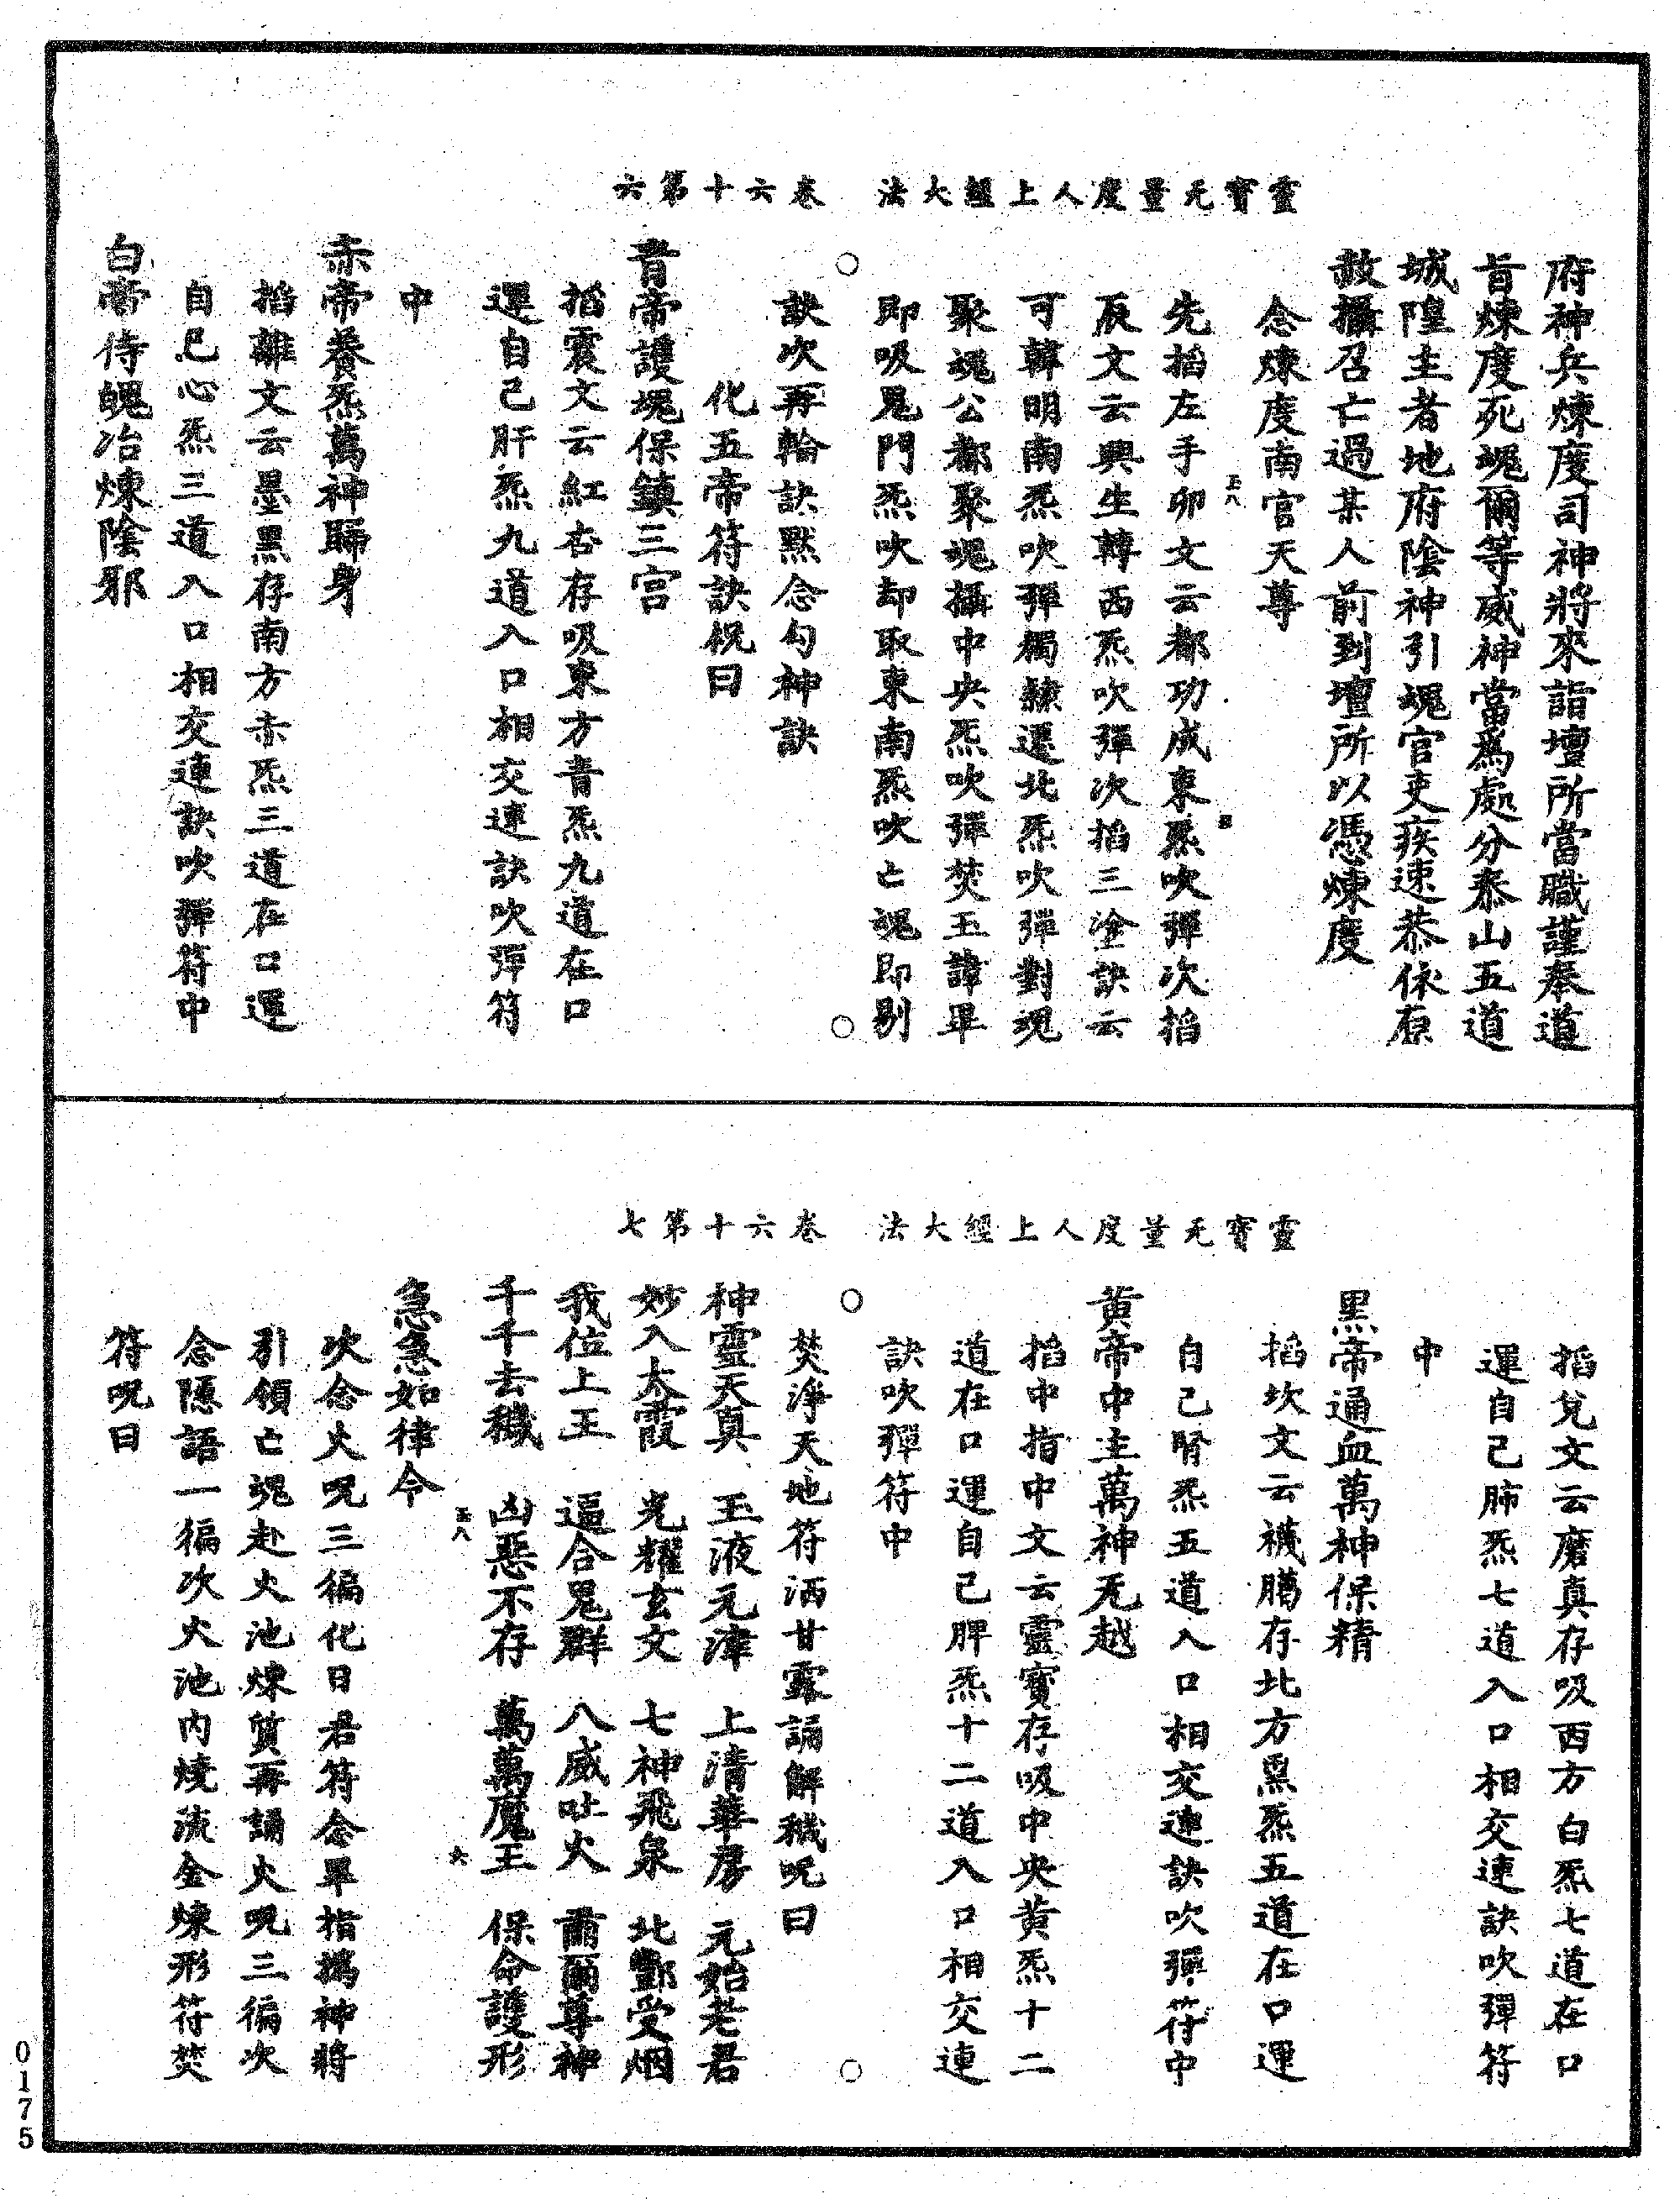 靈寶无量度人上經大法　卷六十第六
府神兵煉度司神將來詣壇所當職謹奉道
旨煉度死魂爾等威神當為處分泰山五道
城隍主者地府陰神引魂官吏疾速恭依原
赦攝召亡過某人前到壇所以憑煉度
念煉度南宮天尊
先掐左手卯文云都功成東炁吹彈次掐
辰文云興生轉西炁吹彈次掐三塗訣云
可韓明南炁吹彈獨隸還北炁吹彈對魂
聚魂公都聚魂攝中央炁吹彈焚玉諱畢
即吸鬼門炁吹却取東南炁吹亡魂即剔
訣吹再輪訣默念勾神訣
化五帝符訣祝曰
青帝護魂保鎮三宮
掐震文云紅杏存吸東方青炁九道在口
運自己肝炁九道入口相交連訣吹彈符
中
赤帝養炁萬神歸身
掐離文云墨黑存南方赤炁三道在口運
自己心炁三道入口相交連訣吹彈符中
白帝侍魄冶煉陰邪
靈寶无量度人上經大法　卷六十第七
掐兌文云磨真存吸西方白炁七道在口
運自己肺炁七道入口相交連訣吹彈符
中
黑帝通血萬神保精
掐坎文云襪臈存北方黑炁五道在口運
自己腎炁五道入口相交連訣吹彈符中
黃帝中主萬神无越
掐中指中文云靈寶存吸中央黃炁十二
道在口運自己脾炁十二道入口相交連
訣吹彈符中
焚淨天地符洒甘露誦解穢呪曰
神靈天真　玉液元津　上清華房　元始老君
妙入太霞　光耀玄文　七神飛泉　北酆受烟
我位上王　逼合鬼群　八威吐火　爾爾尊神
千千去穢　凶惡不存　萬萬魔王　保命護形
急急如律令
次念火呪三徧化日君符念畢指撝神將
引領亡魂赴火池煉質再誦火呪三徧次
念隱語一徧次火池內燒流金煉形符焚
符呪曰
0175